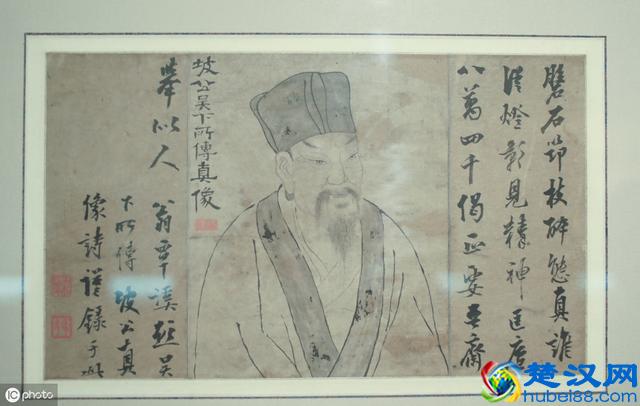 磐石筇枝醉態真誰
從燈影見精神匡廬
八萬四千偈正要吾齋
坡公吴下所傳真像
舉似人
翁覃谿題吳
下所傳坡公真
像詩謹錄于此
iC photo
楚汉网
hubei88.com